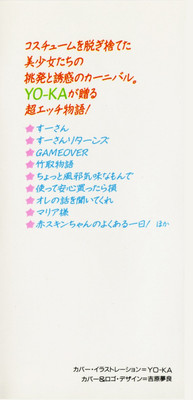 コスチュームを脱ぎ捨てた
美少女たちの
挑発と誘惑のカーニバル。
YO-KAが贈る
超エッチ物語!
★すーさん
★すーさんリターンズ
★GAMEOVER
★竹取物語
★ちょっと風邪気味なもんで
★使って安心買ったら損
★オレの話を聞いてくれ
★マリア様
★赤スキンちゃんのよくある一日! ほか
カバー・イラストレーション=YO-KA
カバー&ロゴ・デザイン=吉原夢良